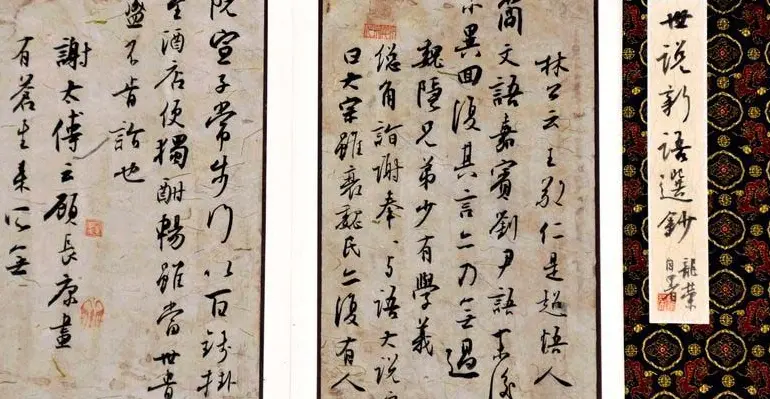 世说新语選鈔
龍榮
自署
林公云王敬仁是超悟人
簡文語嘉賓劉尹語末後
亦異回復其言亦乃無過
魏隱兄弟少有學義
総角詣謝奉、与語大说
曰大宗雖衰魏氏已復有人
阮宣子常步行以百錢掛
至酒店便獨酣暢雖當世貴
盛不肯詣也
謝太傅云顧長康畫
有蒼生來所無